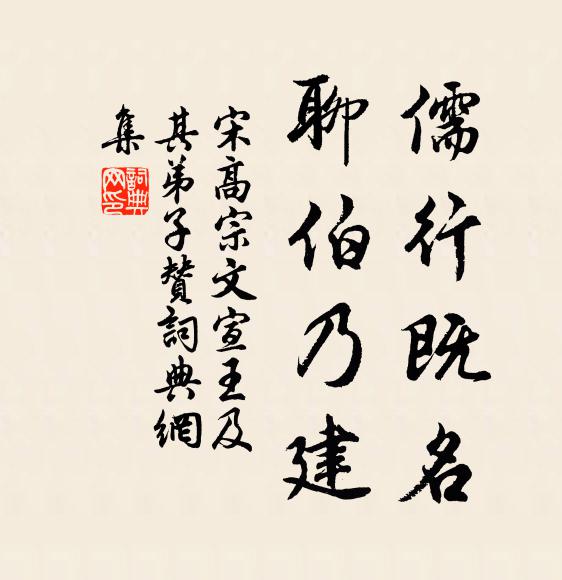 儒行既名
聊伯乃建
宋高宗文宣王及
其弟子贊詞典網
集
詞典
网印